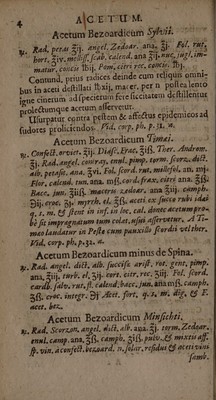 4 ACETUM.
Acetum Bezoardicum Sylvii.
℞. Rad. petas ℥j. angel. Zedoar. ana. ℥j. Fol. rut.
hort. ℥iv. meliss. scab. calend. ana ℥ij. nuc. jugl. im-
matur. concis ℔ij. Pom. citri rec. concis. ℔j.
Contund. prius radices deinde cum reliquis omni-
bus in aceti destillati ℔xij, macer. per n. postea lento
igne cinerum ad specierum fere siccitatem destillentur
prolectumque acetum asservetur.
Usurpatur contra pestem & affectus epidemicos ad
sudores proliciendos. Vid. corp. ph. p. 31. a.
Acetum Bezoardicum Timæi.
℞. Confect. orviet. ℥ij. Diasc. Frac. ℥iß. Ther. Androm.
℥j. Rad. angel. contray. enul. pimp. torm. scorz. dict.
alb. petasit. ana. ℥vi. Fol. scord. rut. millefol. an. mj.
Flor. calend. tun. ana mß. cord. frax. citri ana ℥ß.
Bacc. jun. ℥iiß. macern zedoar. ana ℥ij. camph.
℥iij. croc. ℥j. myrrh. el. ℥ß. aceti ex succo rubi idæi
q. s. m. & stent in inf. in loc. cal. donec acetum pro-
be sit impregnatum tum colat. usui asservetur. A Ti-
mæo laudatur in Peste cum panxillo scordii vel ther.
Vid. corp. ph. p. 32. a.
Acetum Bezoardicum minus de Spina.
℞. Rad. angel. dict. succisæ arist. rot. gent. pimp.
ana, ℥iij. turb. el. ℥ij. cort. citr. rec. ℥iij. Fol. scord.
cardb. salv. rut. fl. calend. bacc. jun. ana mß. camph.
℥ß. croc. integr. ℥ij Acet. fort. q. s. m. dig. & F.
acet. bez.
Acetum Bezoardicum Minschti.
℞. Rad. Scorzon. angel. dict. alb. ana. ℥j. torm. Zedoar.
enul. camp. ana. ℥ß, camph. ℥iß. pulv. & mixtis aff.
sp. vin. a confect. bezoard. n. solar. residui & aceti vini
samb.